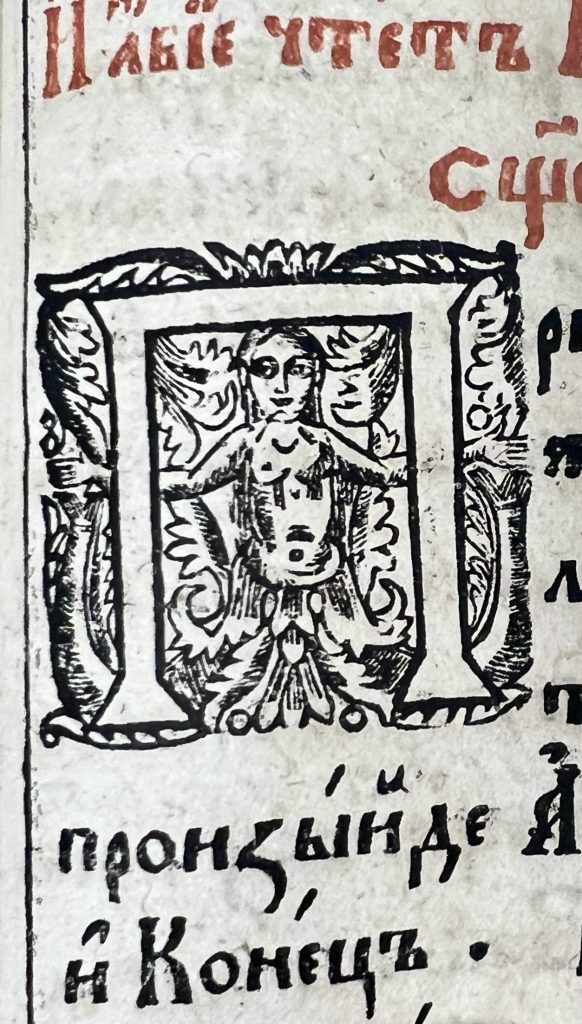 И҆ а҆бїе чтетъ
сщ҃е
П
произы́йде А҆
и҆ Коне́цъ .